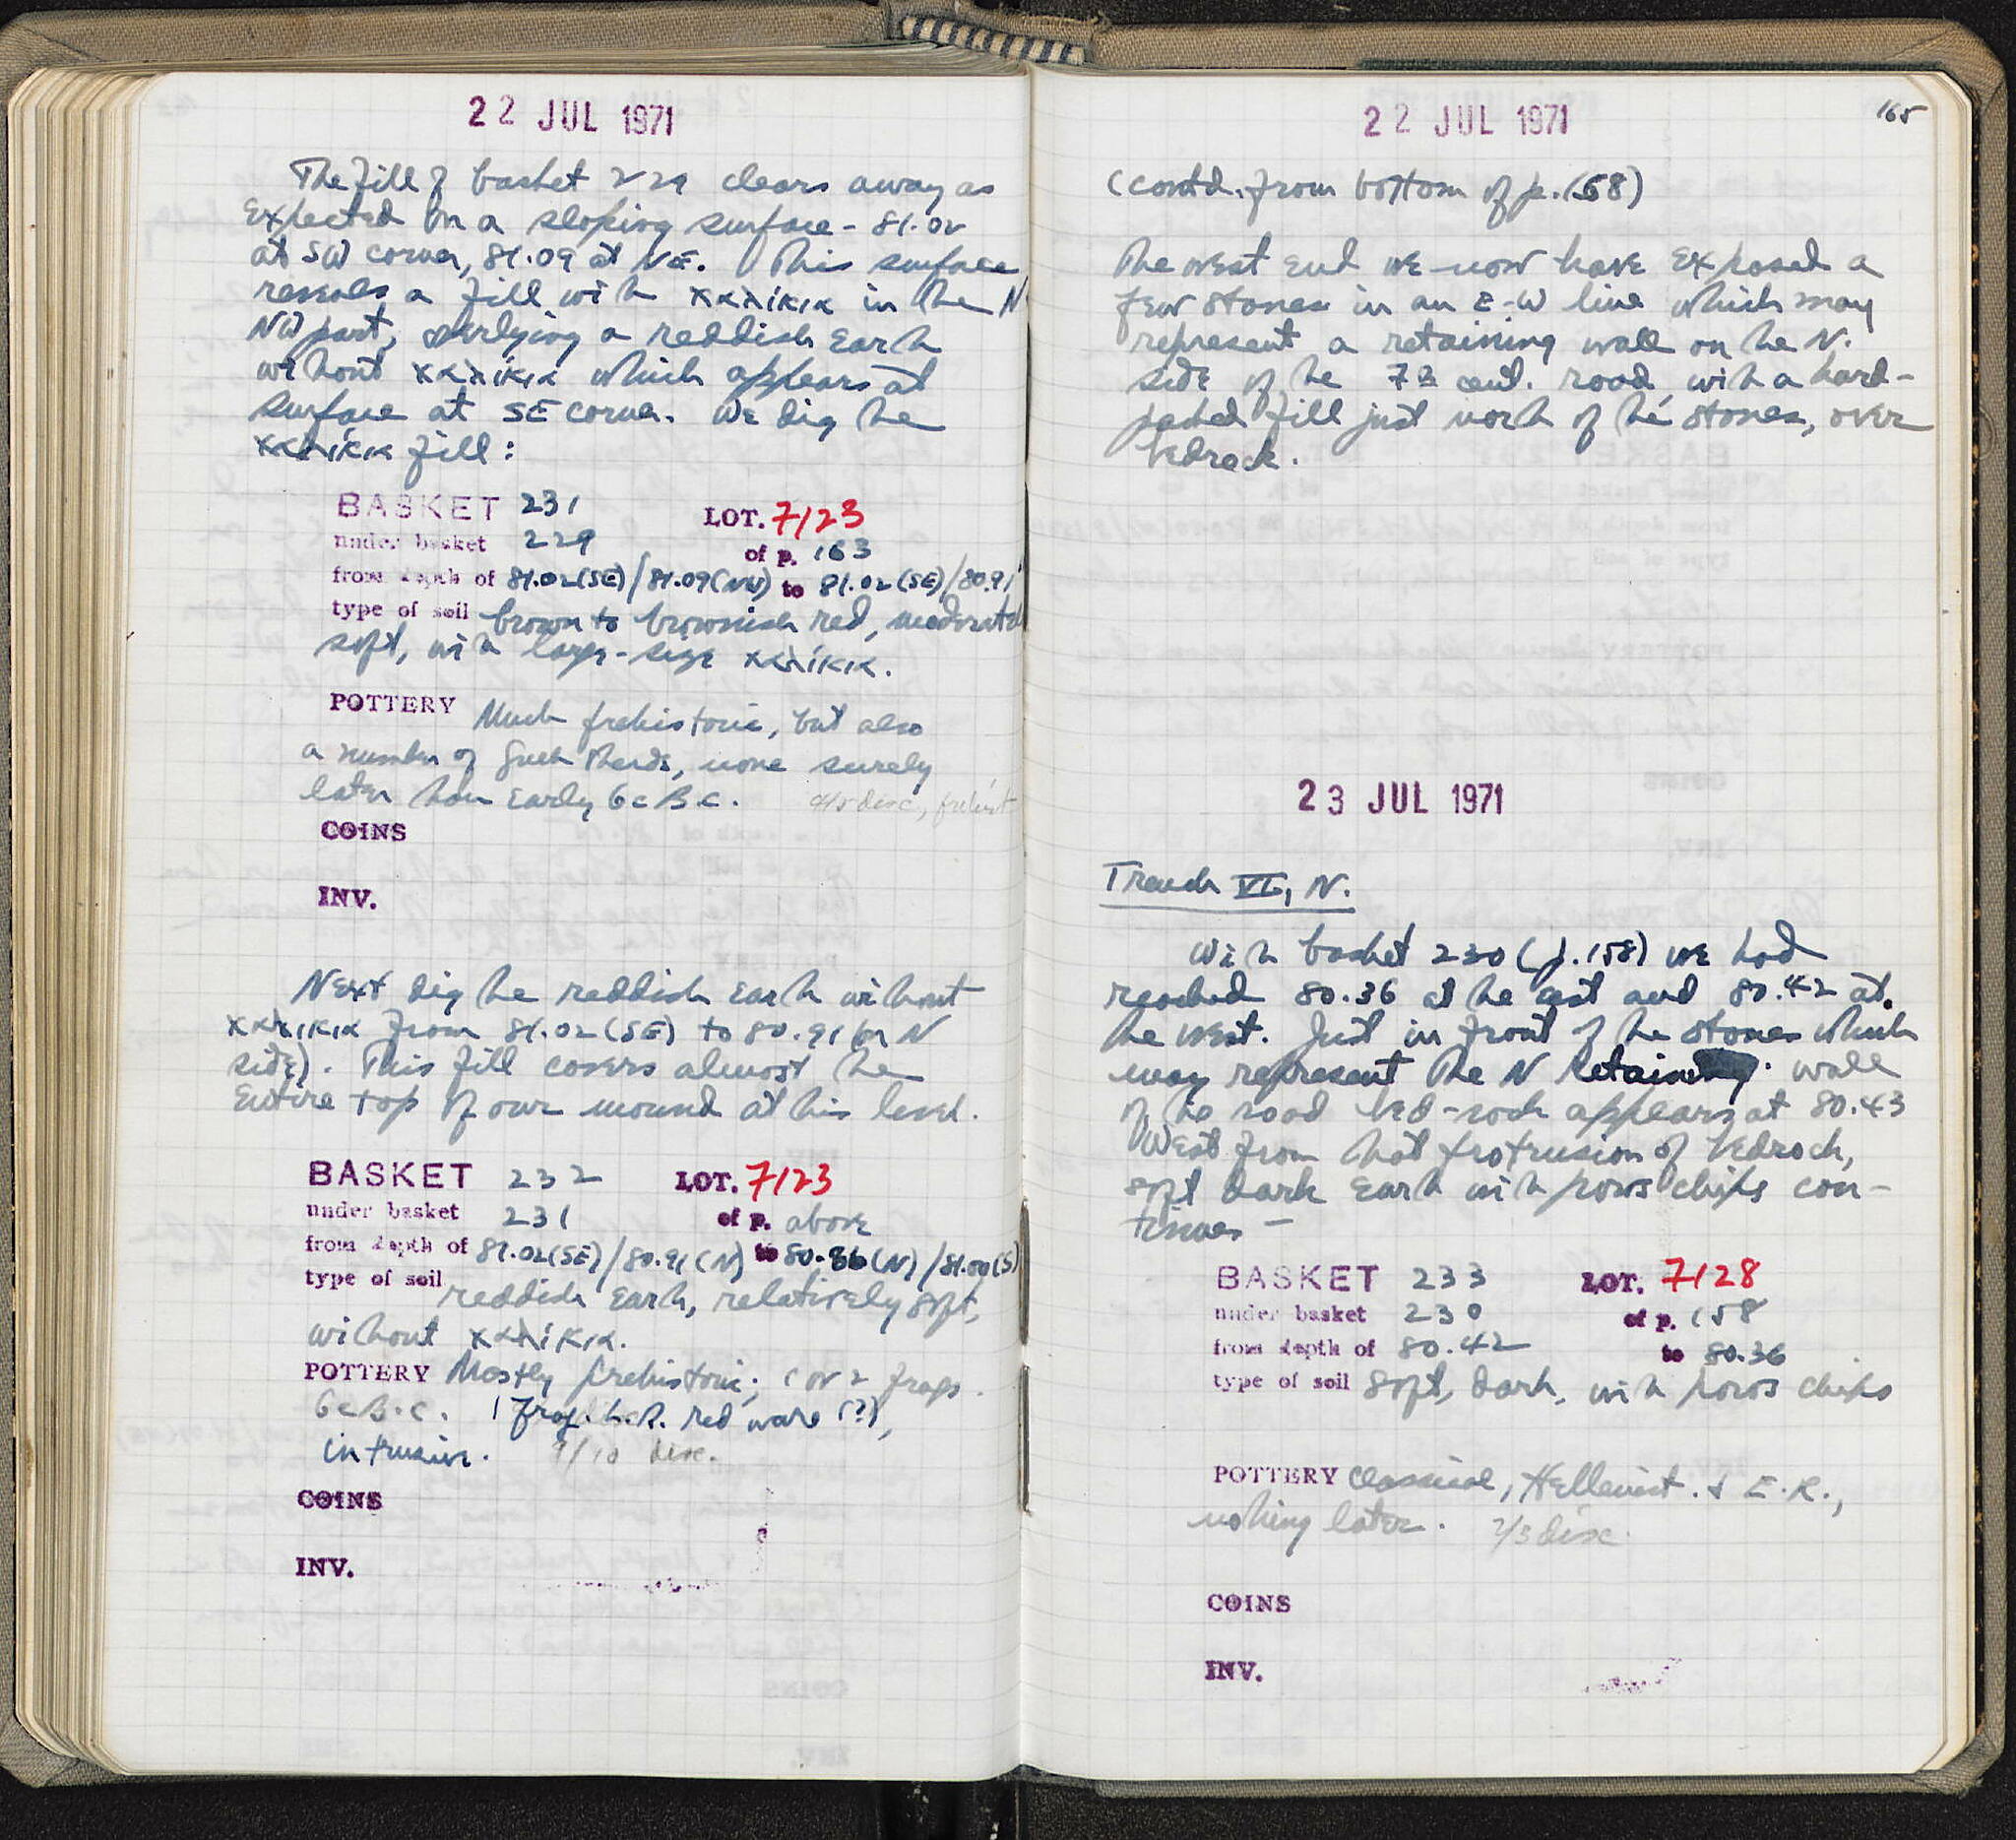 22 JUL 1971
The fill of basket 229 clears away as
expected on a sloping surface - 81.02
at SW corner, 81.09 at NE. This surface
reveals a fill with χαλίκια in the N
NW part, overlying a reddish earth
without χαλίκια which appears at
surface at SE corner. We dig the
χαλίκια fill:
BASKET 231 LOT. 7123
under basket 229 of p. 163
from depth of 81.02(SE)/81.09(NW) to 81.02(SE)/80.91
type of soil brown to brownish red, moderately
soft, with large-size χαλίκια.
POTTERY Much prehistoric, but also
a number of Greek sherds, none surely
later than early 6c B.C. 4/5 disc, prehist
COINS
INV.
Next dig the reddish earth without
χαλίκια from 81.02(SE) to 80.91 (on N
side). This fill covers almost the
entire top of our mound at this level.
BASKET 232 LOT. 7123
under basket 231 of p. above
from depth of 81.02(SE)/80.91(N) to 80.86(N)/81.00(S)
type of soil reddish earth, relatively soft,
without χαλίκια.
POTTERY Mostly prehistoric; 1 or 2 frags.
6c B.C. 1 frag. L.R. red ware (?),
intrusive. 9/10 disc.
COINS
INV.
22 JUL 1971
165
(contd. from bottom of p. 158)
the west end we now have exposed a
few stones in an E-W line which may
represent a retaining wall on the N.
side of the 7th cent. road, with a hard-
packed fill just north of the stones, over
bedrock.
23 JUL 1971
Trench VI, N.
With basket 230 (p. 158) we had
reached 80.36 at the east and 80.42 at
the west. Just in front of the stones which
may represent the N retaining wall
of the road bed-rock appears at 80.43
West from that protrusion of bedrock,
soft dark earth with poros chips con-
tinues -
BASKET 233 LOT. 7128
under basket 230 of p. 158
from depth of 80.42 to 80.36
type of soil soft, dark, with poros chips
POTTERY Classical, Hellenist. & E.R.,
nothing later. 2/3 disc.
COINS
INV.